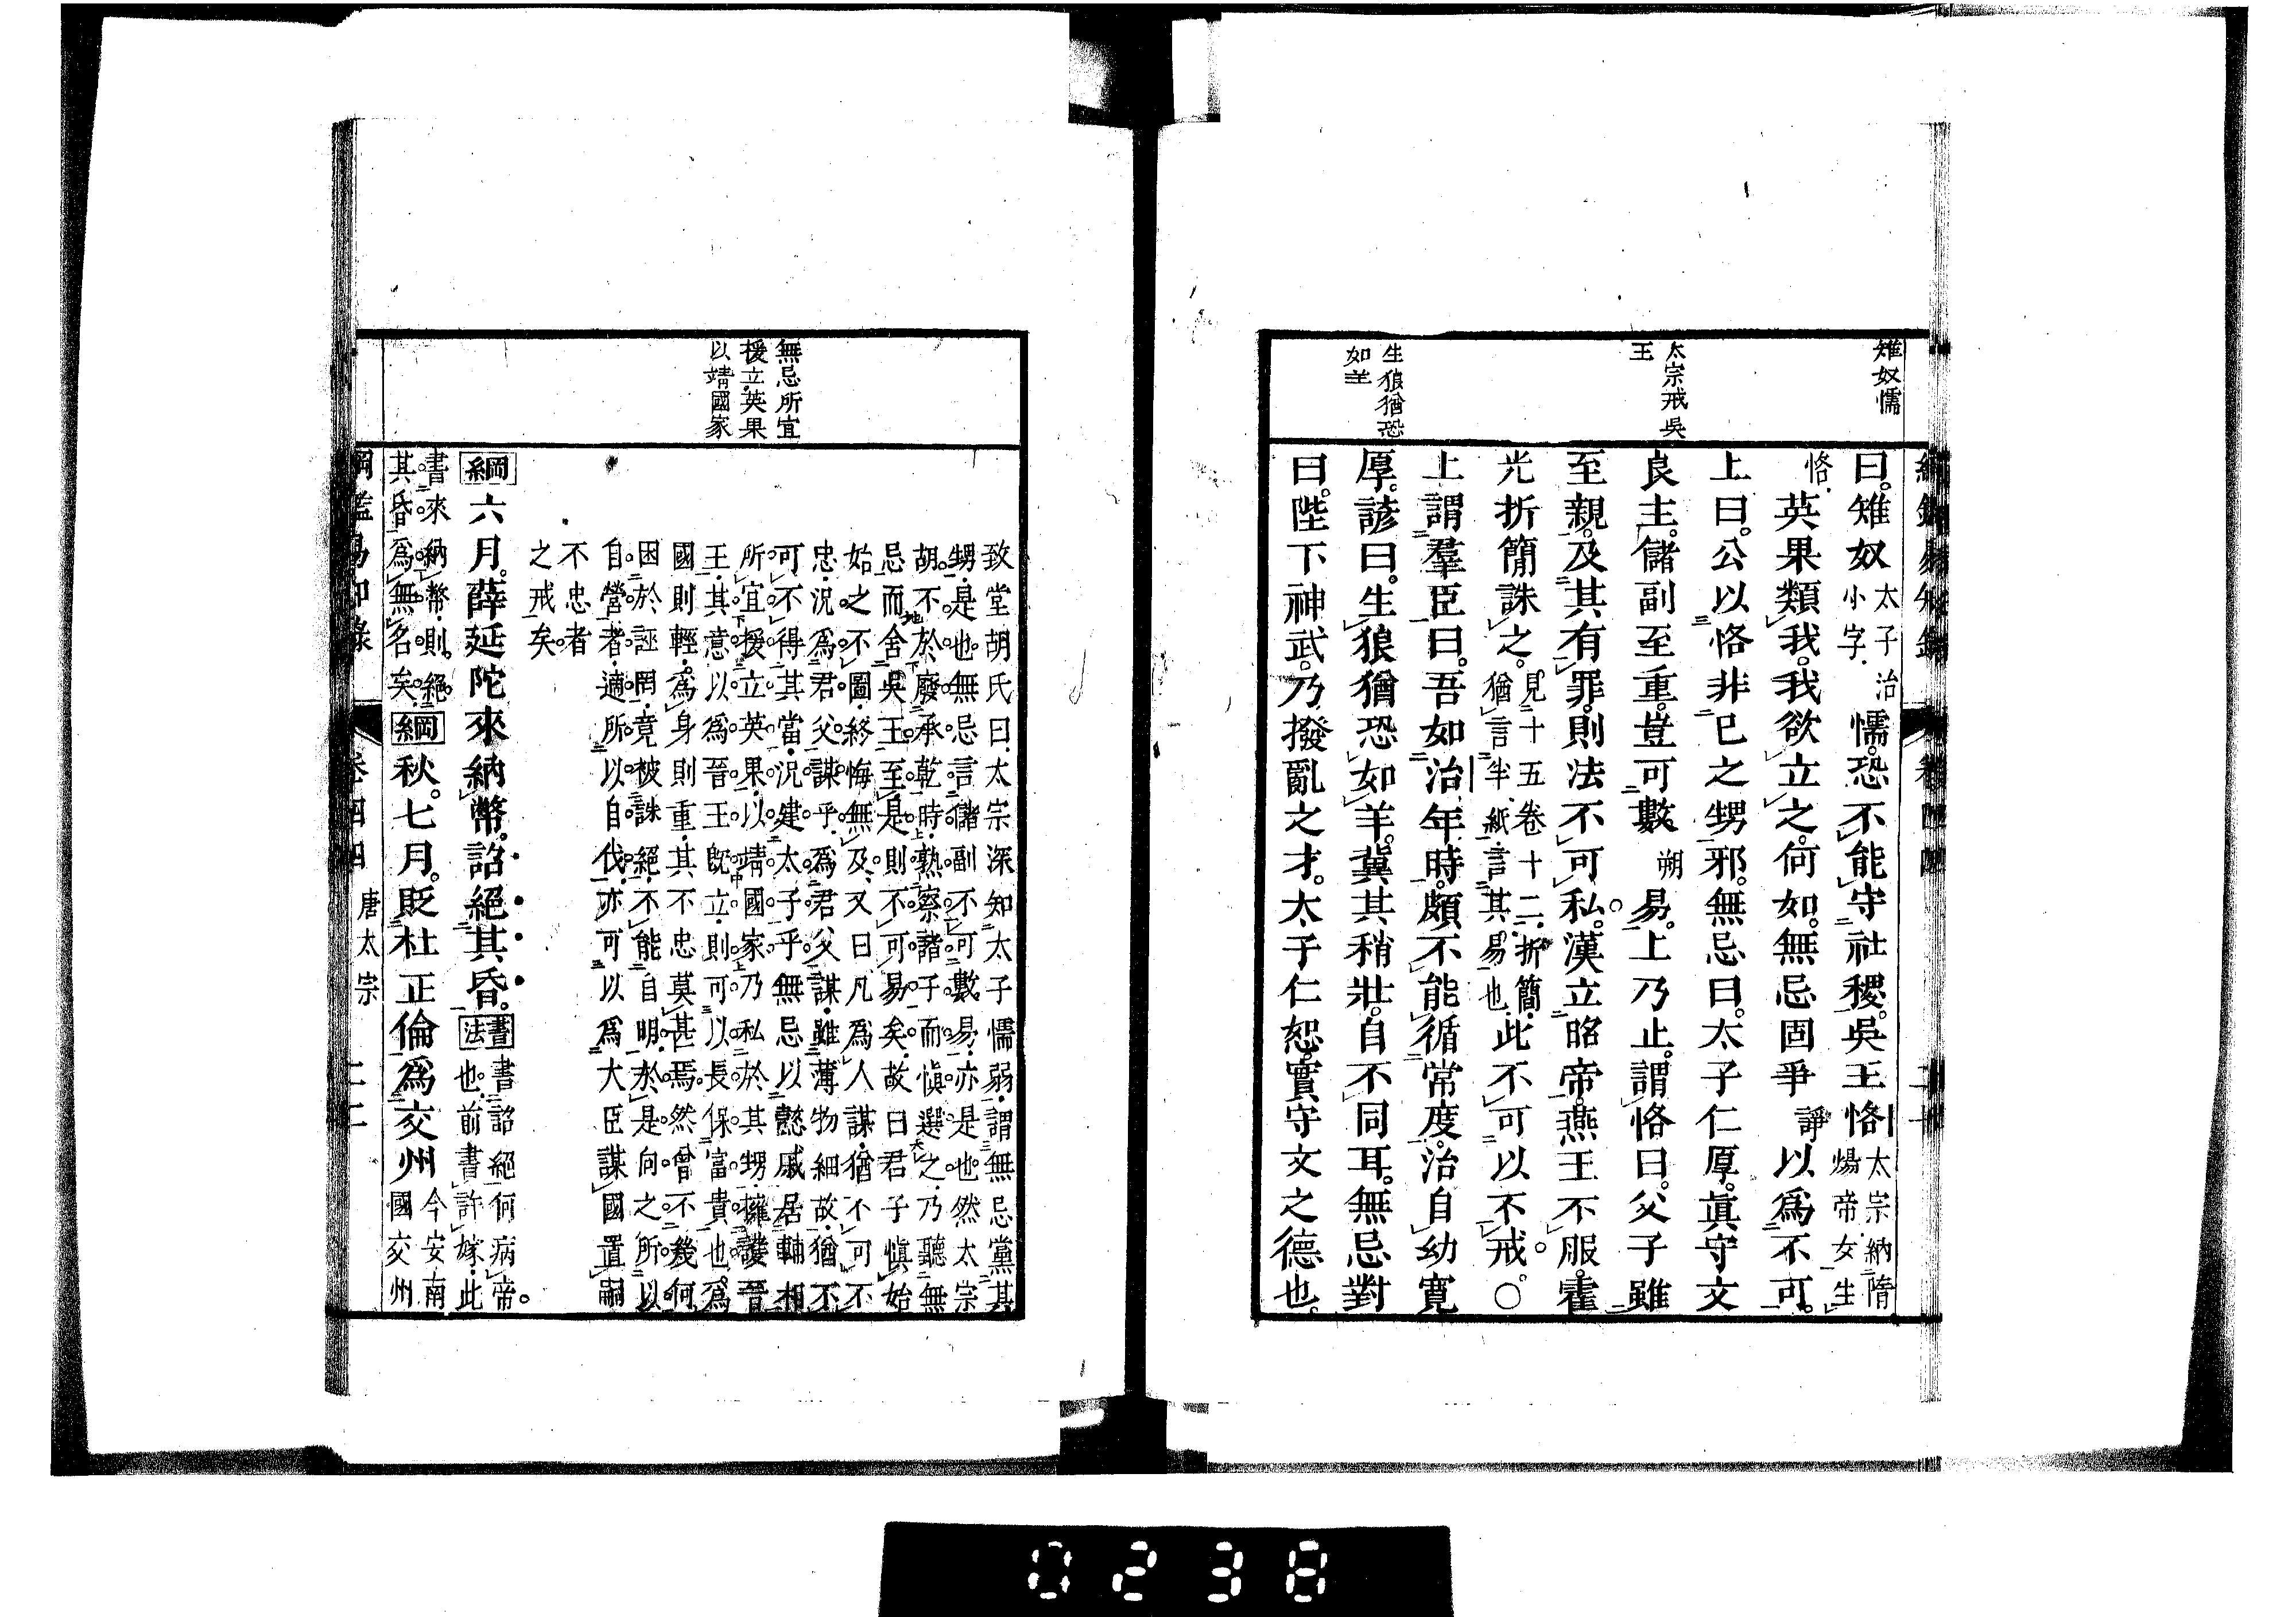 雉奴懦
太宗戒吳
王
生狼猶恐
如羊
曰。雉奴 太子治小字 懦。恐不能守社稷。吳王恪 太宗納隋煬帝女生
恪 英果類我。我欲立之。何如。無忌固爭 諍 以爲不可。
上曰。公以恪非己之甥邪。無忌曰。太子仁厚。眞守文
良主。儲副至重。豈可數 朔 易。上乃止。謂恪曰。父子雖
至親。及其有罪。則法不可私。漢立昭帝。燕王不服。霍
光折簡誅之。見十五卷十二。折簡。猶言半紙。言其易也。此不可以不戒。○
上謂羣臣曰。吾如治年時。頗不能循常度。治自幼寛
厚。諺曰。生狼猶恐如羊。冀其稍壯。自不同耳。無忌對
曰。陛下神武。乃撥亂之才。太子仁恕。實守文之德也。
卷四四
無忌所宜
援立英果
以靖國家
致堂胡氏曰。太宗深知太子懦弱。謂無忌黨其
甥。是也。無忌言儲副不可數易。亦是也。然太宗
胡不於廢承乾時。熟察諸子而愼選之。乃聽無
忌而舍吳王。至是則不可易矣。故曰君子愼始
始之不圖。終悔無及。又曰。凡爲人謀。猶不可不
忠。況爲君父謀乎。爲君父謀。雖薄物細故。猶不
可不得其當。況建太子乎。無忌以懿戚居輔相
所宜援立英果。以靖國家。乃私於其甥。擁護晉
王。其意以爲晉王既立。則可以長保富貴也。爲
國則輕。爲身則重。其不忠莫甚焉。然曾不幾何
困於誣罔。竟被誅絕。不能自明。於是向之所以
自營者。適所以自伐。亦可以爲大臣謀國置嗣
不忠者
之戒矣。
綱 六月。薛延陀來納幣。詔絕其昏。書法 書詔絕何。病帝也。前書許嫁。此
書來納幣。則絕其昏爲無名矣。綱 秋。七月。貶杜正倫爲交州 今安南國交州
綱鑑易知錄 卷四四 唐太宗 二十一
0238